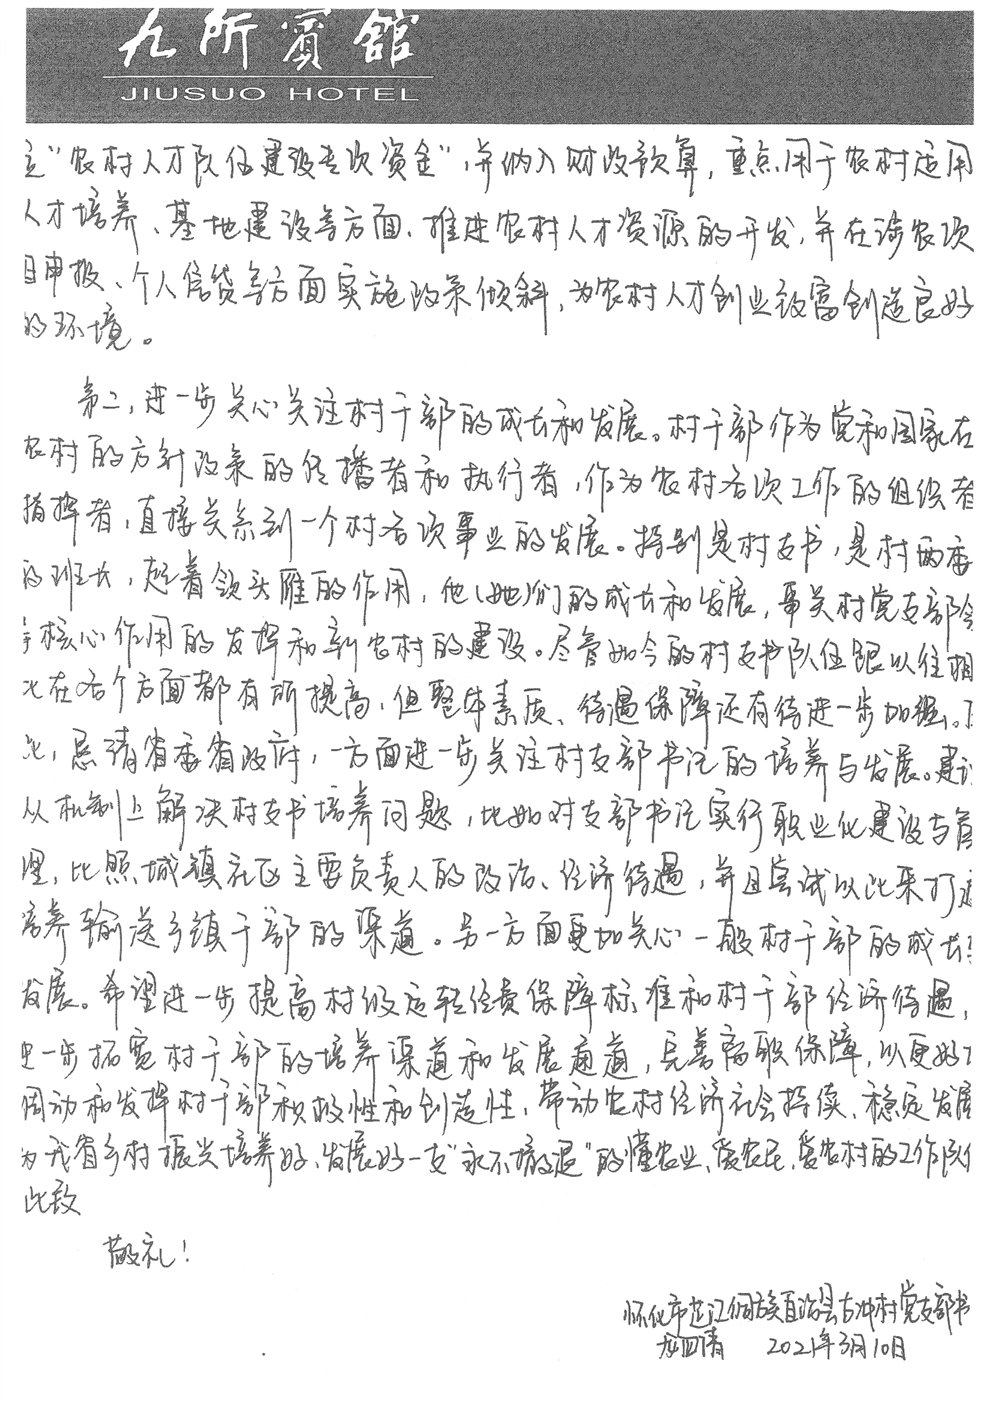 九所賓館
JIUSUO HOTEL
立“农村人才队伍建设专项资金”,并纳入财政预算,重点用于农村适用
人才培养、基地建设等方面,推进农村人才资源的开发,并在涉农项
目申报、个人信贷等方面实施政策倾斜,为农村人才创业致富创造良好
的环境。
第二,进一步关心关注村干部的成长和发展。村干部作为党和国家在
农村的方针政策的传播者和执行者,作为农村各项工作的组织者
指挥者,直接关系到一个村各项事业的发展。特别是村支书,是村两委
的班长,起着领头雁的作用,他(她)们的成长和发展,事关村党支部领
导核心作用的发挥和新农村的建设。尽管如今的村支书队伍跟以往相
比在各个方面都有所提高,但整体素质、待遇保障还有待进一步加强。因
此,恳请省委省政府,一方面进一步关注村支部书记的培养与发展。建议
从机制上解决村支书培养问题,比如对支部书记实行职业化建设与管
理,比照城镇社区主要负责人的政治、经济待遇,并且尝试以此来打造
培养输送乡镇干部的渠道。另一方面更加关心一般村干部的成长与
发展。希望进一步提高村级运转经费保障标准和村干部经济待遇,
进一步拓宽村干部的培养渠道和发展通道,完善离职保障,以更好地
调动和发挥村干部积极性和创造性,带动农村经济社会持续、稳定发展
为我省乡村振兴培养好、发展好一支“永不撤退”的懂农业、爱农民、爱农村的工作队伍
此致
敬礼!
怀化市芷江侗族自治县古冲村党支部书
龙四清 2021年3月10日